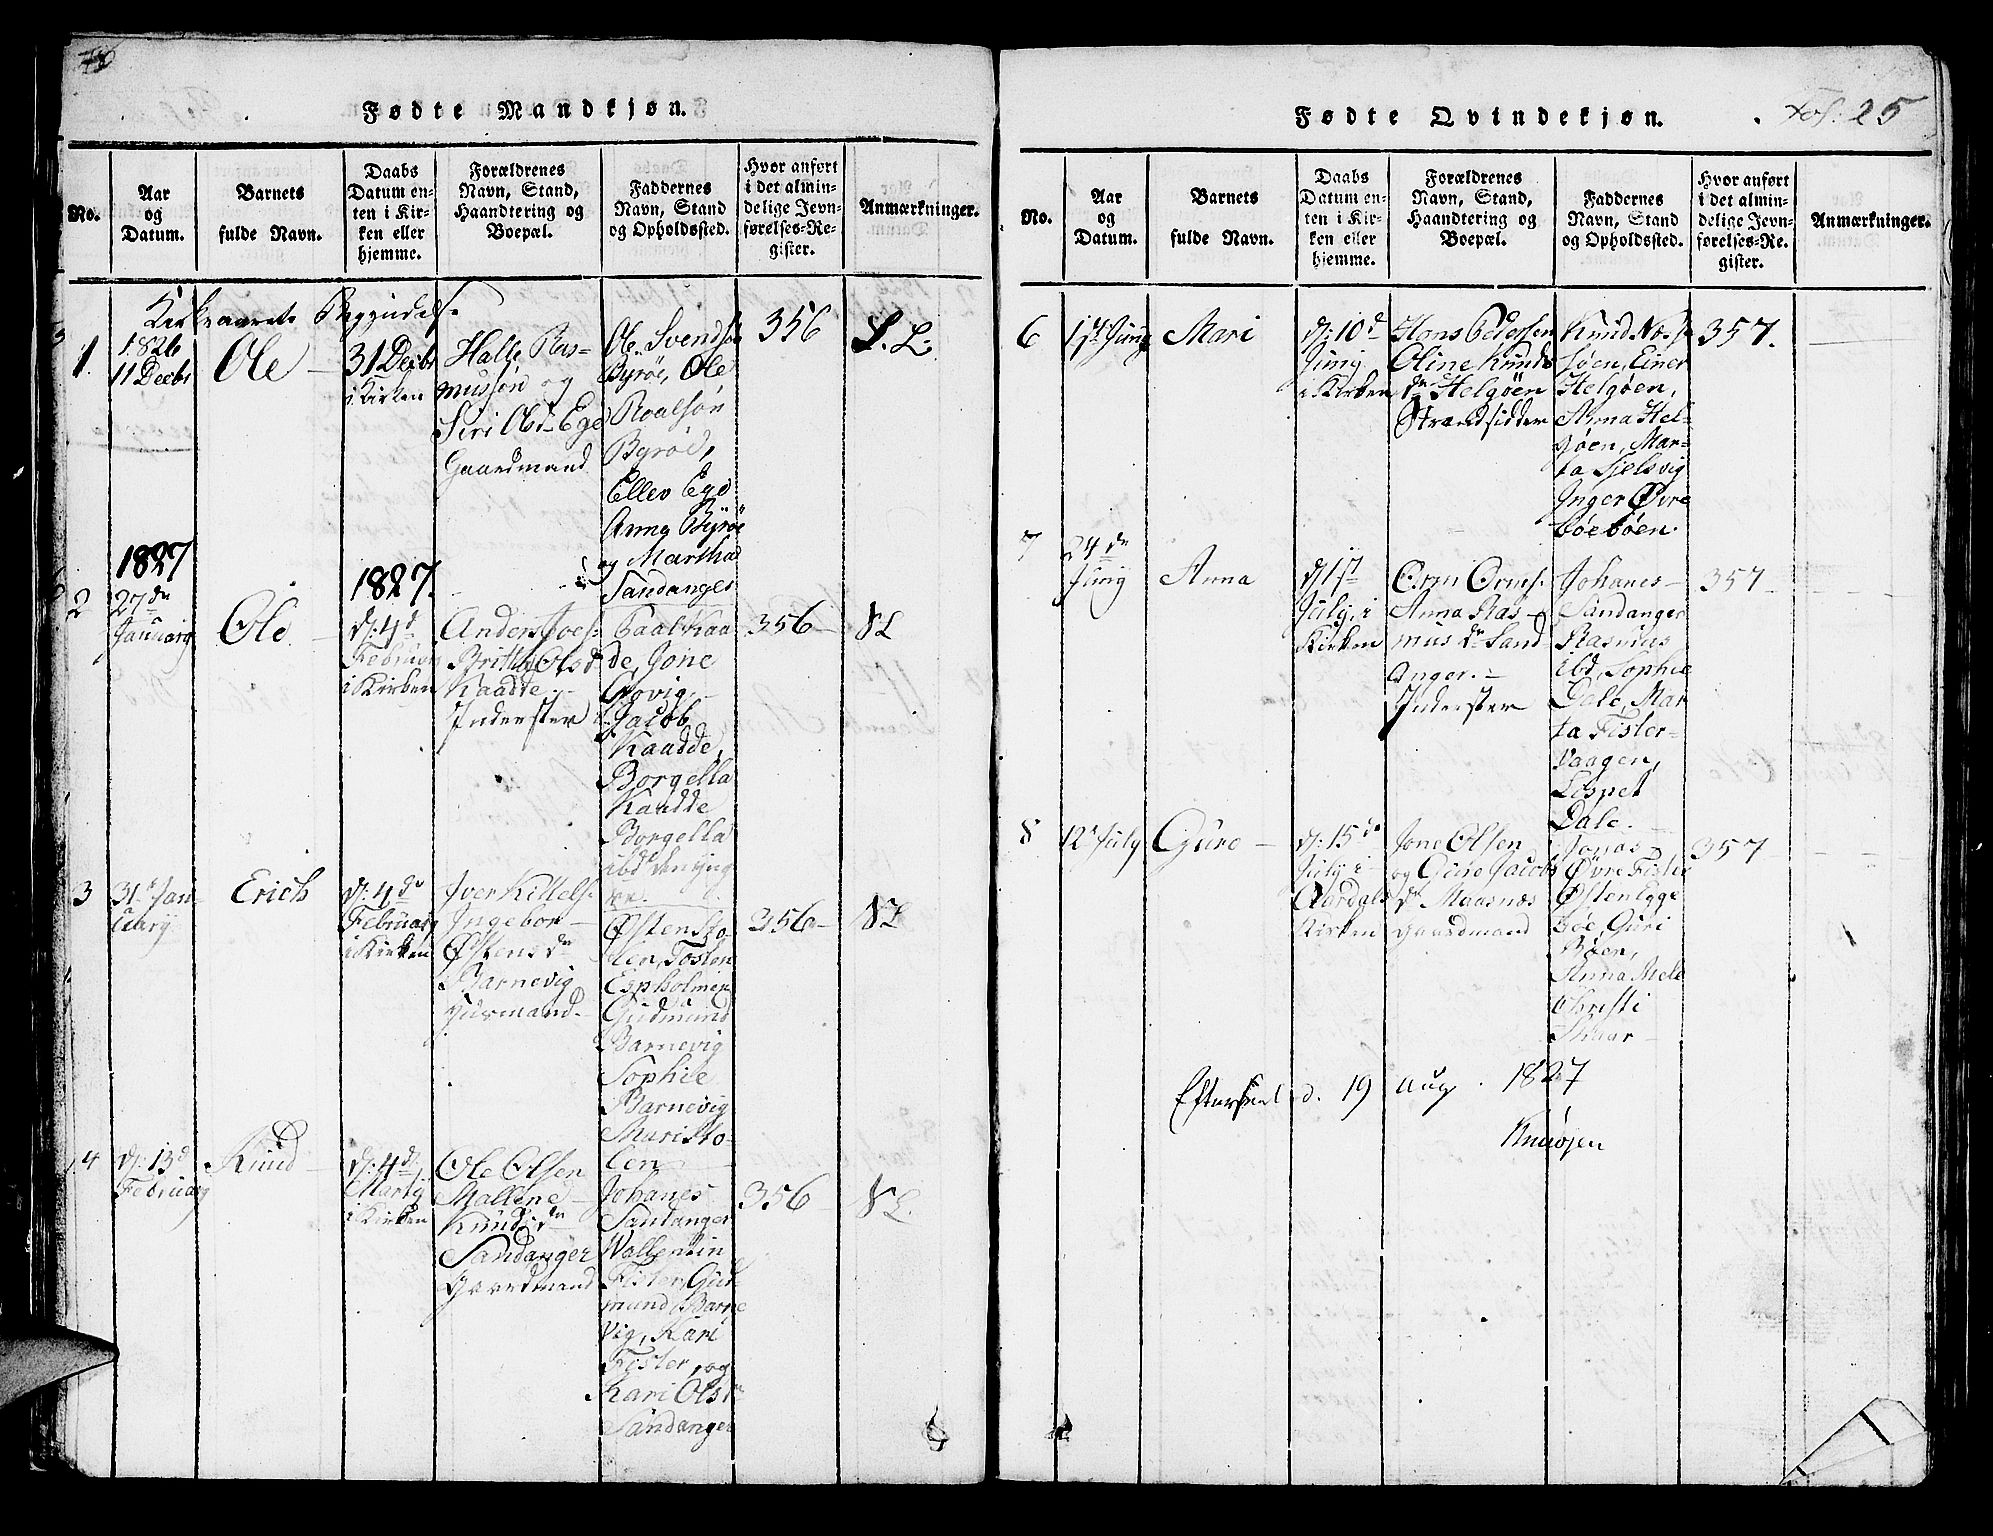 Fødte Mandkjøn.
No.
Aar
og
Datum.
Barnets
fulde Navn.
Daabs
Datum en-
ten i Kir-
ken eller
hjemme.
Forældrenes
Navn, Stand,
Haandtering og
Boepæl.
Faddernes
Navn, Stand
og Opholdssted.
Hvor anført
i det almin-
delige Jevn-
førelses-Re-
gister.
Anmærkninger.
Kirkeaarets Begyndelse
1.
1826
11 Decbr
Ole
31 Decbr
i Kirken
Halle Ras-
musson og
Siri Olsd. Ege
Gaardmand
Ole Svends.
Byrøe, Ole
Roalsøn
Byrøe,
Ellev Ege
Anna Byrøe
og Martha
Sandanger
356
S. L.
1827
1827.
2
27de
January
Ole
d: 4d
Februar
i Kirken
Anders Joes.
Britha Olsd
Kaadte.
Inderster
Paal Kaa
de, Jone
Jacob
Kaadde,
Borgella
Kaadde
Borgella
ibd den yng
re.
356
S L
3
31 Jan-
uary
Erich
d: 4de
February
i Kirken
Iver Kittels.
Ingebor
Østensdr
Barnevig
Huusmand.
Østen Sto-
len, Tosten
Espholmen
Gudmund
Barnevig
Sophie
Barnevig
Mari Sto-
len
356
S L
4
d: 13d
February
Knud
d: 4d
Martij
i Kirken
Ole Olsen
Mallene
Knudsdr
Sandanger
Gaardmand
Johanes
Sandanger
Wallentin
Fister, Gud
mund Barne
vig, Kari
Fister, og
Kari Olsdr
Sandanger
356
S L.
Fødte Qvindekjøn.
Fol: 25
No.
Aar
og
Datum.
Barnets
fulde Navn.
Daabs
Datum en-
ten i Kir-
ken eller
hjemme.
Forældrenes
Navn, Stand,
Haandtering og
Boepæl.
Faddernes
Navn, Stand
og Opholdssted.
Hvor anført
i det almin-
delige Jevn-
førelses-Re-
gister.
Anmærkninger.
6
1st Juny
Mari
d: 10d
Juny
i Kirken
Hans Pedersen
Oline Knuds
dr Helgøen
Strandsidder
Knud
Einer
Helgøen,
Anna Hel-
gøen, Mar-
ta Sjelsvig
Inger Øvre
bøebøen.
357.
7
24de
Juny
Anna
d 1st
July i
Kirken
Orm Orms.
Anna Ras-
mus dr Sand
anger.
Inderster
Johanes
Sandanger
Rasmus
ibd, Sophie
Dale, Mar
ta Fister-
vaagen,
Lospet
Dale.
357
8
12 July
Guro
d: 15de
July i
Aardals
Kirken
Jone Olsen
og Guro Jacobs
dr Maasnæs
Gaardmand
Jonas
Øvre Fister
Østen Egge
bøe, Guri
Bøen,
Anna Mele
Christi
Skaar
357
Efterseet d. 19 Aug. 1827